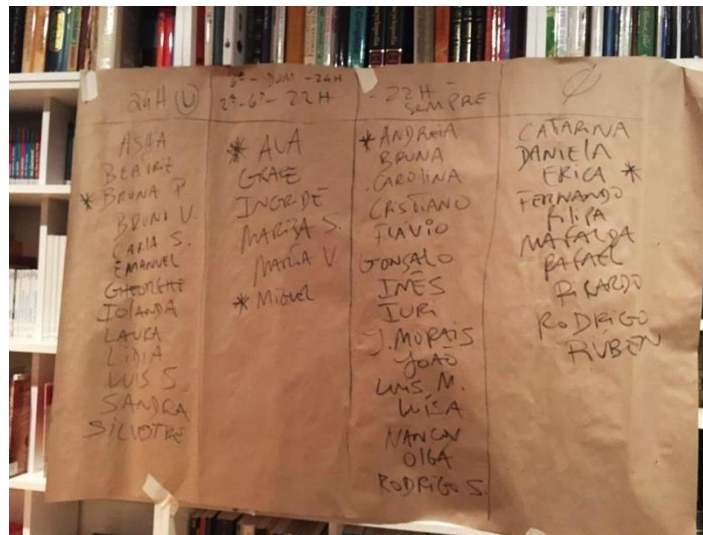 24H (L)
ASHA
BEATRIZ
* BRUNA P.
BRUNO V.
CARLA S.
EMANUEL
GHEORGHE
IOLANDA
LAURA
LIDIA
LUIS S.
SANDRA
SILVOTRE
6ª - DOM - 24H
2ª - 6ª - 22H
* AVA
GRACE
INGRIDE
MARISA S.
MARIA V
* MIGUEL
- 22H -
SEMPRE
* ANDREIA
BRUNA
CAROLINA
CRISTIANO
FLAVIO
GONÇALO
INÊS
IURI
J. MORAIS
JOÃO
LUIS M.
LUÍSA
NANCY
OLGA
RODRIGO S.
Ø
CATARINA
DANIELA
ERICA *
FERNANDO
FILIPA
MAFALDA
RAFAEL
RICARDO
RODRIGO
RUBEN